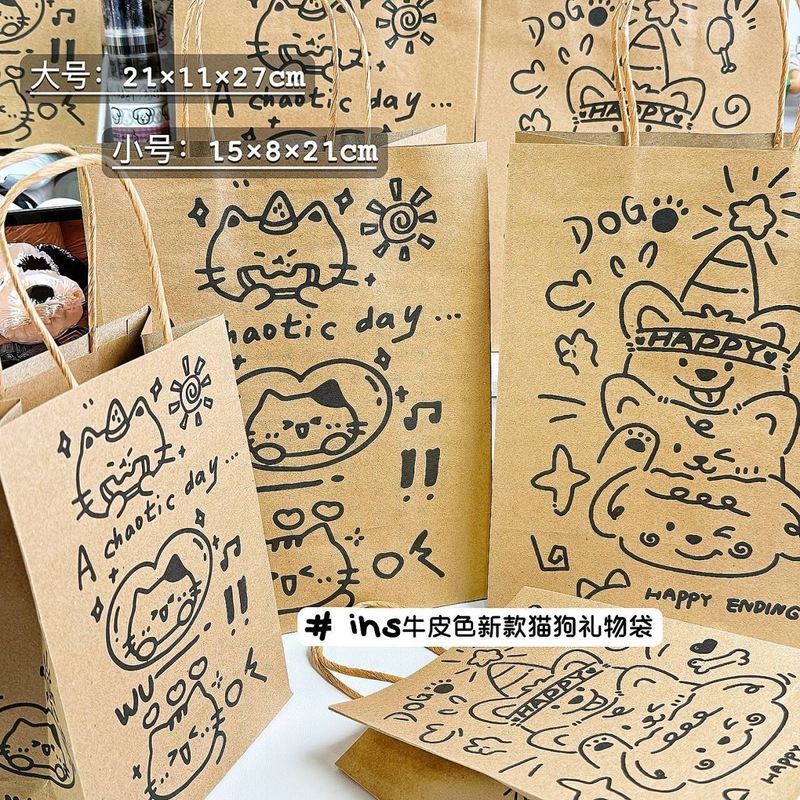 大号：21×11×27cm
小号：15×8×21cm
A chaotic day...
DOG
HAPPY
DOG
HAPPY
chaotic day...
A chaotic day...
WU
HAPPY ENDING
# ins牛皮色新款猫狗礼物袋
DOG
HAPPY
HAPPY